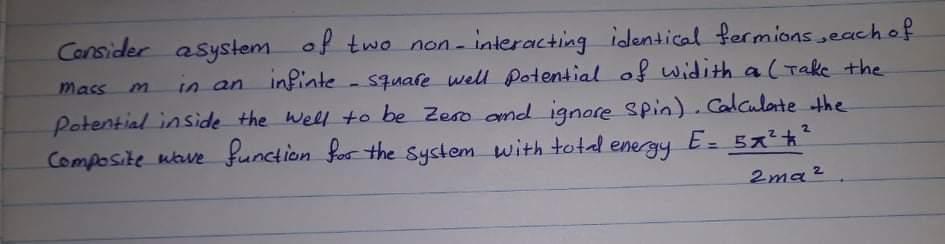 Consider a system of two non-interacting identical fermions, each of
mass m in an infinte-square well potential of widith a (Take the
Potential inside the well to be Zero and ignore spin). Calculate the
Composite wave function for the system with total energy E = 5π²ħ²
2ma².